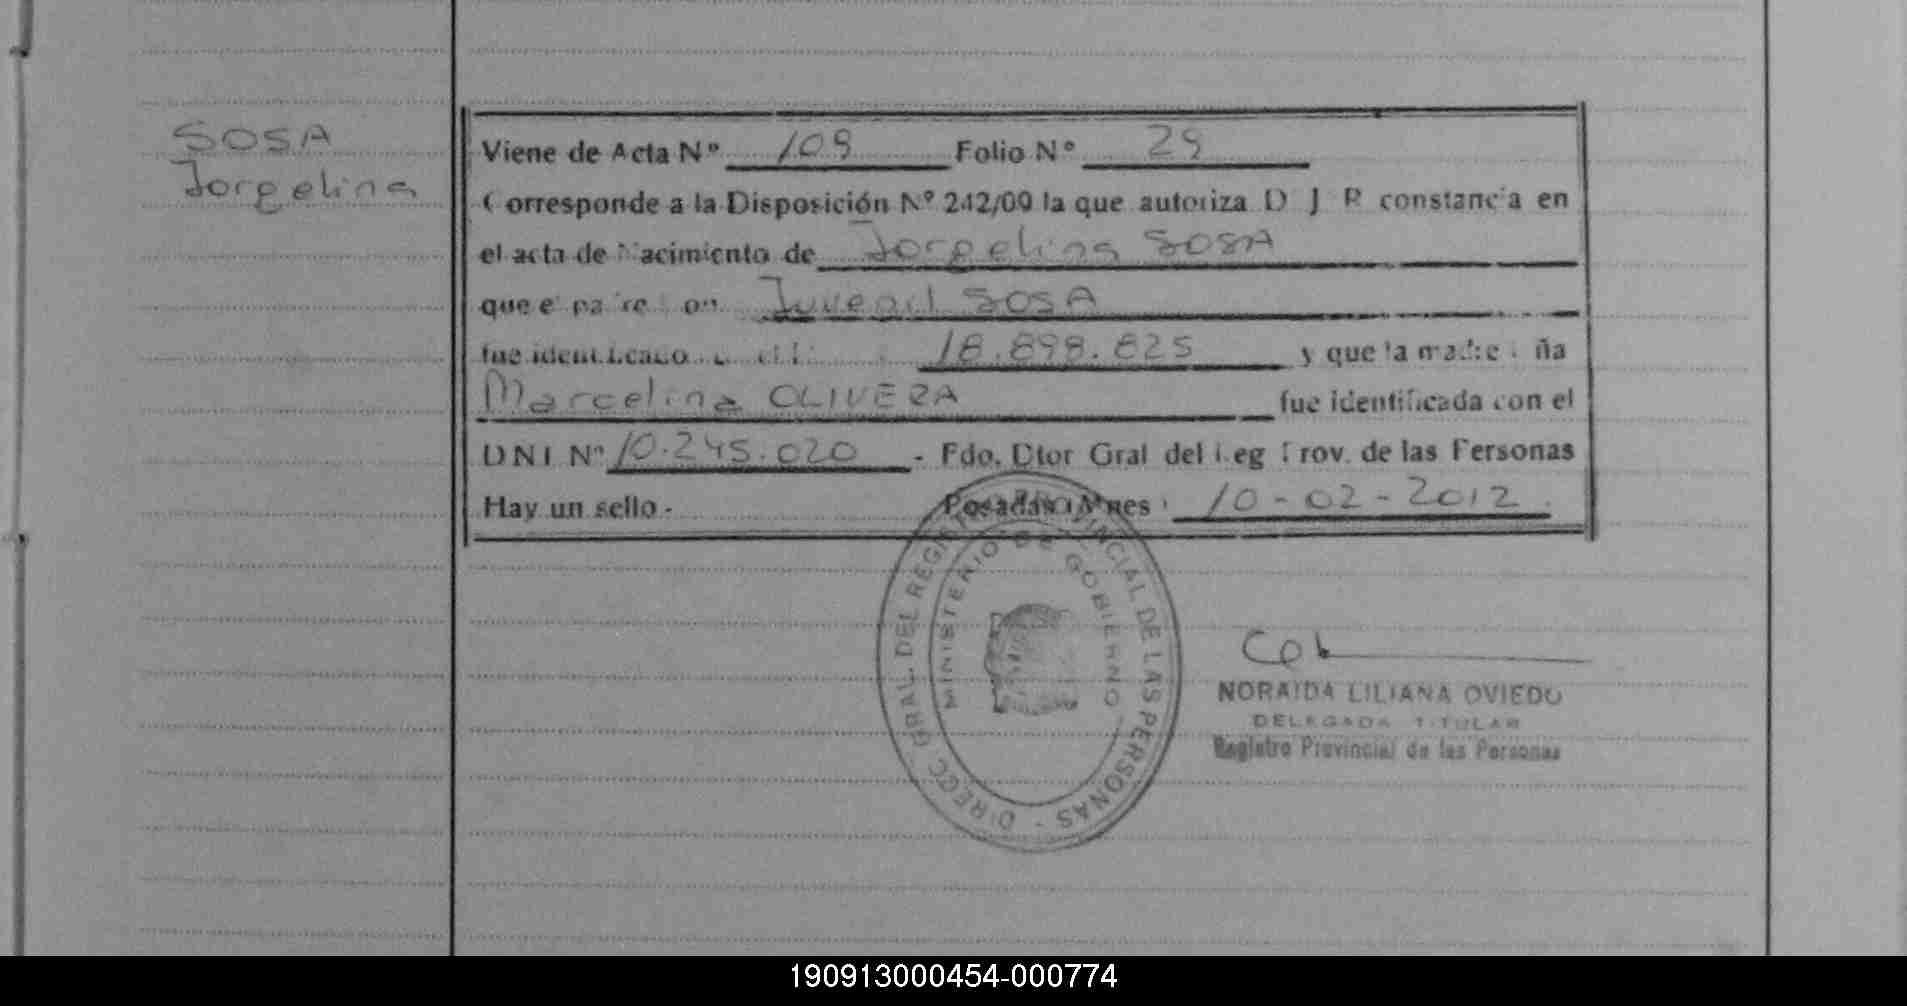 SOSA
Jorgelina
Viene de Acta N° 109 Folio N° 29
Corresponde a la Disposición N° 242/09 la que autoriza D J R constancia en
el acta de Nacimiento de Jorgelina SOSA
que el padre Juvenil SOSA
fue identificado 18.898.825 y que la madre ña
Marcelina OLIVERA fue identificada con el
DNI N° 10.245.020 - Fdo. Dtor Gral del Reg Prov. de las Personas
Hay un sello - Posadas Mnes 10-02-2012.
DIRECC GRAL. DEL REGISTRO PROVINCIAL DE LAS PERSONAS -
MINISTERIO DE GOBIERNO
NORAIDA LILIANA OVIEDO
DELEGADA TITULAR
Registro Provincial de las Personas
190913000454-000774